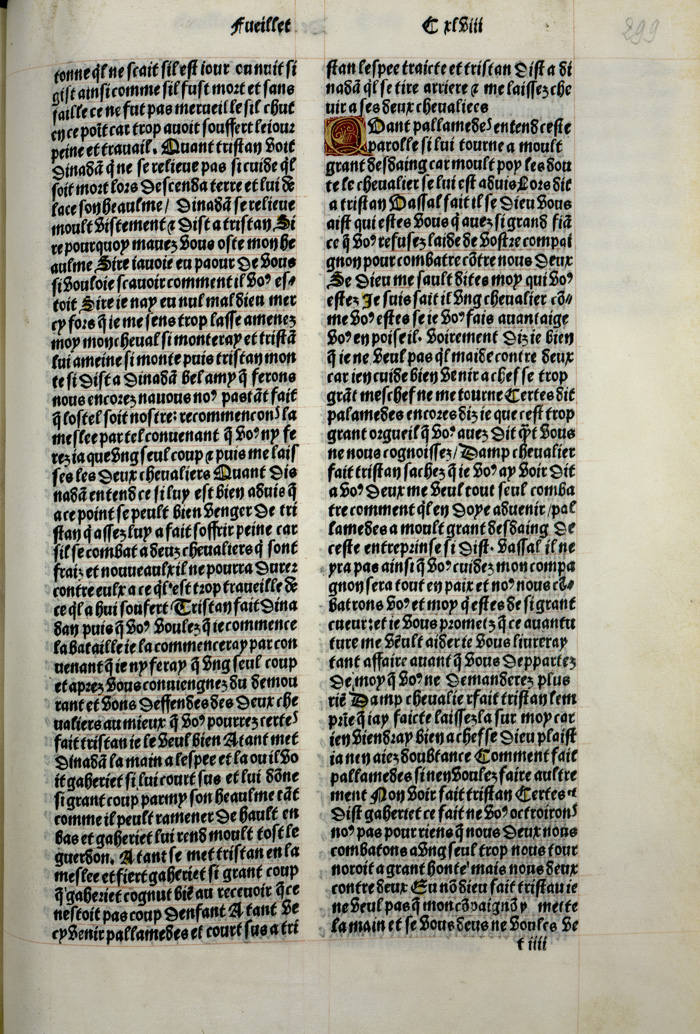 Fueillet C xlviii
299
tonne ql ne scait sil est iour ou nuit si
gist ainsi comme sil fust mort et sans
faille ce ne fut pas merueille sil chut
en ce poĩt car trop auoit souffert le iour
peine et trauail. Quant tristan voit
Dinadã q̃ ne se relieue pas si cuide ql
soit mort lors descend a terre et lui de
lace son heaulme/ Dinadã se relieue
moult vistement ⁊ dist a tristan. Si
re pourquoy mauez vous oste mon he
aulme Sire iauoie eu paour de vous
si vouloie scauoir comment il voꝰ es-
toit Sire ie nay eu nul mal dieu mer
cy fors q̃ ie me sens trop lasse amenez
moy mon cheual si monteray et tristã
lui ameine si monte puis tristan mon
te si dist a Dinadã bel amy q̃ ferons
nous encorez nauons noꝰ pas tãt fait
q̃ lostel soit nostre: recommencons la
meslee par tel conuenant q̃ voꝰ ny fe
rez ia que vng seul coup ⁊ puis me lais
ses les deux cheualiers Quant dis
nadã entend ce si luy est bien aduis q̃
a ce point se peult bien venger de tri
stan q̃ assez luy a fait soffrir peine car
sil se combat a deuz cheualiers q̃ sont
fraiz et nouueaulx il ne pourra durer
contre eulx a ce ql est trop traueille de
ce ql a hui soufert Tristan fait Dina
dan puis q̃ voꝰ voulez q̃ ie commence
la bataille ie la commenceray par con
uenant q̃ ie ny feray q̃ vng seul coup
et aprez vous conuiengnez du demou
rant et vons deffendes des deux che
ualiers au mieux q̃ voꝰ pourrez certes
fait tristan ie le veul bien Atant met
Dinadã la main a lespee et la ou il vo
it gaheriet si lui court sus et lui dõne
si grant coup parmy son heaulme tãt
comme il peult ramener de hault en
bas et gaheriet lui rend moult tost le
guerdon. Atant se met tristan en la
meslee et fiert gaheriet si grant coup
q̃ gaheriet cognut biẽ au receuoir q̃ ce
nestoit pas coup denfant Atant ve
cy venir pallamedes et court sus a tri
stan lespee traicte et tristan dist a di
nadã ql se tire arriere ⁊ me laissez che
uir a ses deux cheualiers
Quant pallamedes entend ceste
parolle si lui tourne a moult
grant desdaing car moult poy les dou
te le cheualier se lui est aduis Lors dit
a tristan Vassal fait il se dieu vous
aist qui estes vous q̃ auez si grand fiã
ce q̃ voꝰ refusez laide de vostre compai
gnon pour combatre cõtre nous deux
Se dieu me sault dites moy qui voꝰ
estez Je suis fait il vng cheualier cõ-
me voꝰ estes se ie voꝰ fais auantaige
voꝰ en poise il. Voirement diz ie bien
q̃ ie ne veul pas ql maide contre deux
car ien cuide bien venir a chef se trop
grãt meschef ne me tourne Certes dit
palamedes encores diz ie que cest trop
grant orgueil q̃ voꝰ auez dit q̃t vous
ne nous cognoissez/ Damp cheualier
fait tristan sachez q̃ ie voꝰ ay voir dit
a voꝰ deux me veul tout seul comba
tre comment ql en doye aduenir/pal
lamedes a moult grant desdaing de
ceste entreprinse si dist. Vassal il ne
yra pas ainsi q̃ voꝰ cuidez mon compa
gnon sera tout en paix et noꝰ nous cõ-
batrons voꝰ et moy q̃ estes de si grant
cueur: et ie vous prometz q̃ ce auantu
ture me veult aider ie vous liureray
tant affaire auant q̃ vous deppartez
De moy q̃ voꝰ ne demanderez plus
riẽ Damp cheualier fait tristan lem
prie q̃ iay faicte laissez la sur moy car
ien viendray bien a chef se dieu plaist
ia nen aiez doubtance Comment fait
pallamedes si nen voulez faire aultre
ment Non voir fait tristan Certes
dist gaheriet ce fait ne voꝰ octroirons
noꝰ pas pour riens q̃ nous deux nous
combatons a vng seul trop nous tour
noroit a grant honte mais nous deux
contre deux En nõ dieu fait tristan ie
ne veul pas q̃ mon cõpaignõ y mette
la main et se vous deus ne voules ve
t iiii